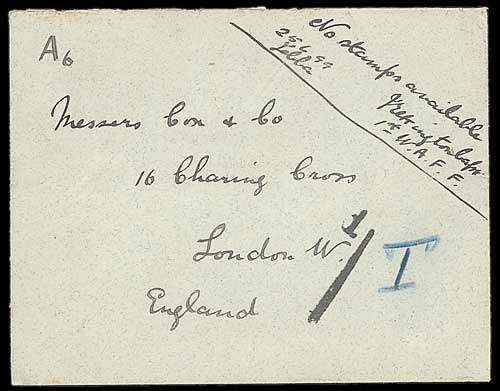 A6
No stamps available
25.6.99
Jebba
1st W.A.F.F.
Messers Cox & Co
16 Charing Cross
London W.
England
1/
T